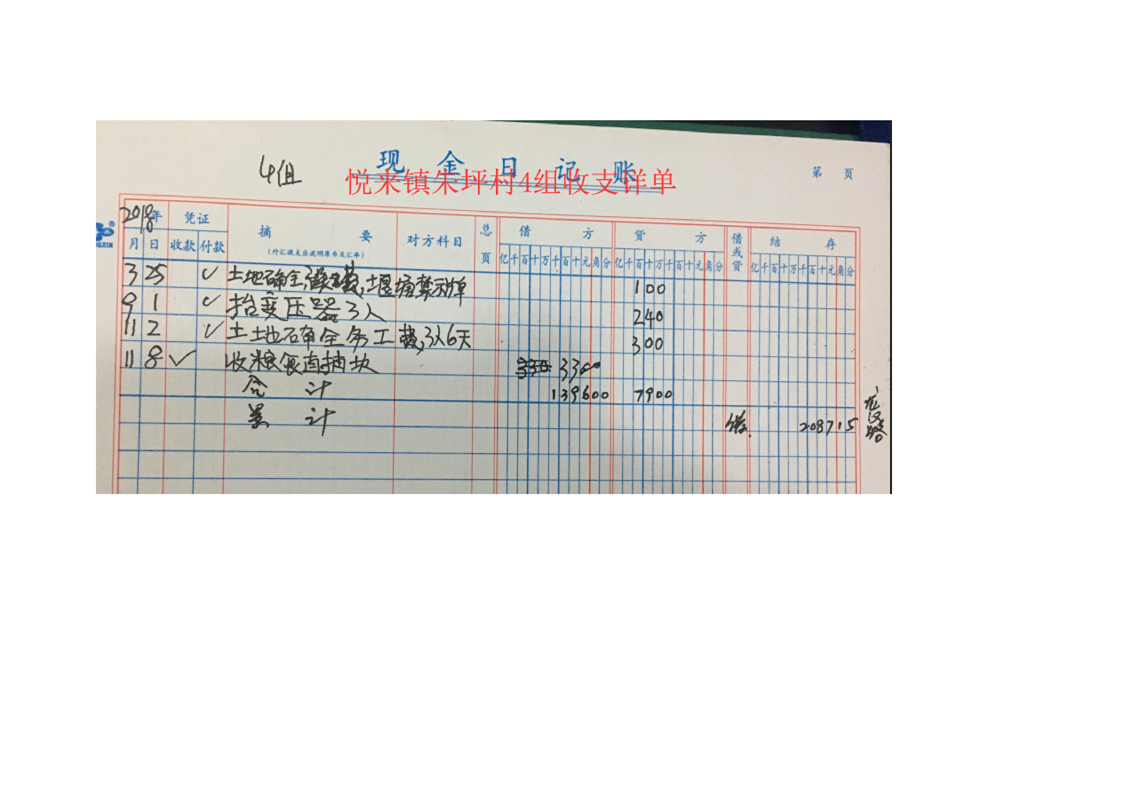 4组
现金日记账
悦来镇朱坪村4组收支详单
第 页
2018年 凭证 摘要 对方科目 总页 借方 贷方 借或贷 结存
月 日 收款 付款 (外汇收支应说明原币及汇率) 亿千百十万千百十元角分 亿千百十万千百十元角分 亿千百十万千百十元角分
3 25 ✓ 土地确全 100
9 1 ✓ 抬变压器3人 240
11 2 ✓ 土土地确全务工费,3人6天 300
11 8 ✓ 收粮食直 3300
合计 139600 7900
累计 借 208715